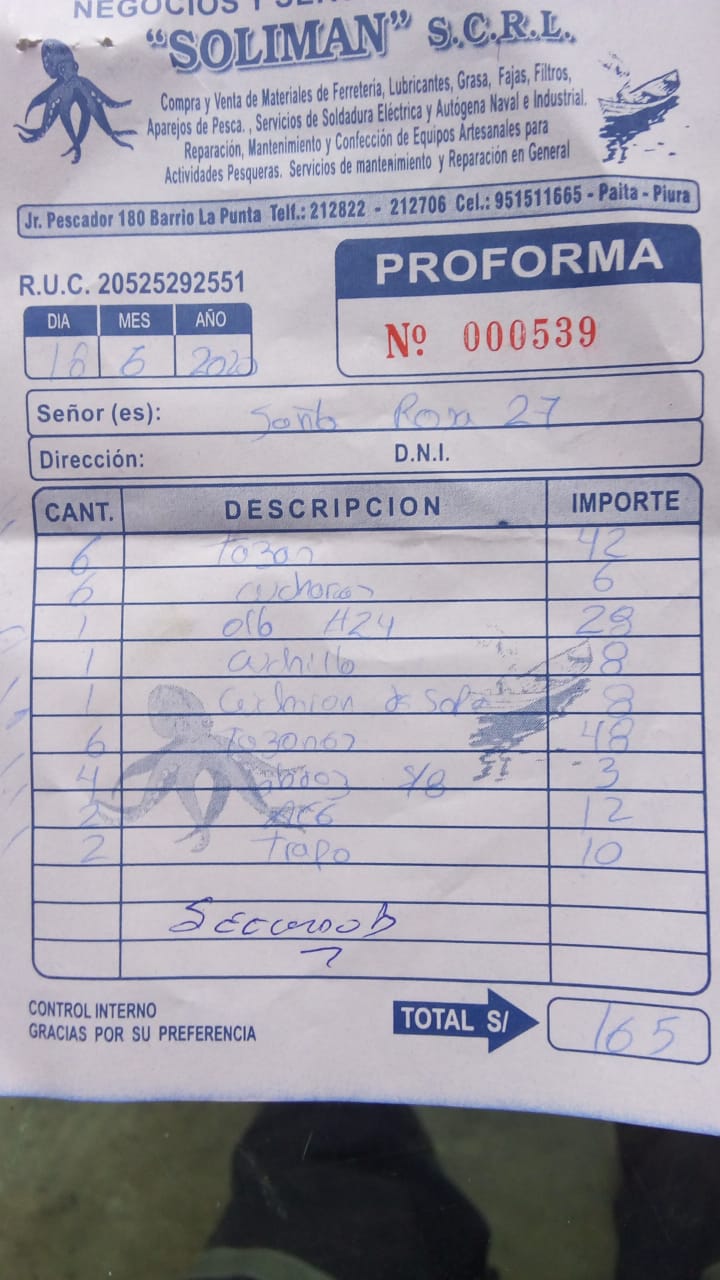 NEGOCIOS Y
“SOLIMAN” S.C.R.L.
Compra y Venta de Materiales de Ferretería, Lubricantes, Grasa, Fajas, Filtros,
Aparejos de Pesca. , Servicios de Soldadura Eléctrica y Autógena Naval e Industrial.
Reparación, Mantenimiento y Confección de Equipos Artesanales para
Actividades Pesqueras. Servicios de mantenimiento y Reparación en General
Jr. Pescador 180 Barrio La Punta Telf.: 212822 - 212706 Cel.: 951511665 - Paita - Piura
R.U.C. 20525292551
PROFORMA
Nº 000539
DIA MES AÑO
18 6 2020
Señor (es): Santa Rosa 27
Dirección: D.N.I.
CANT. DESCRIPCION IMPORTE
6 tazon 42
6 cucharas 6
1 H24 28
1 cuchillo 8
1 de sopa 8
6 tazones 48
4 3
2 12
2 trapo 10
CONTROL INTERNO
GRACIAS POR SU PREFERENCIA
TOTAL S/ 165